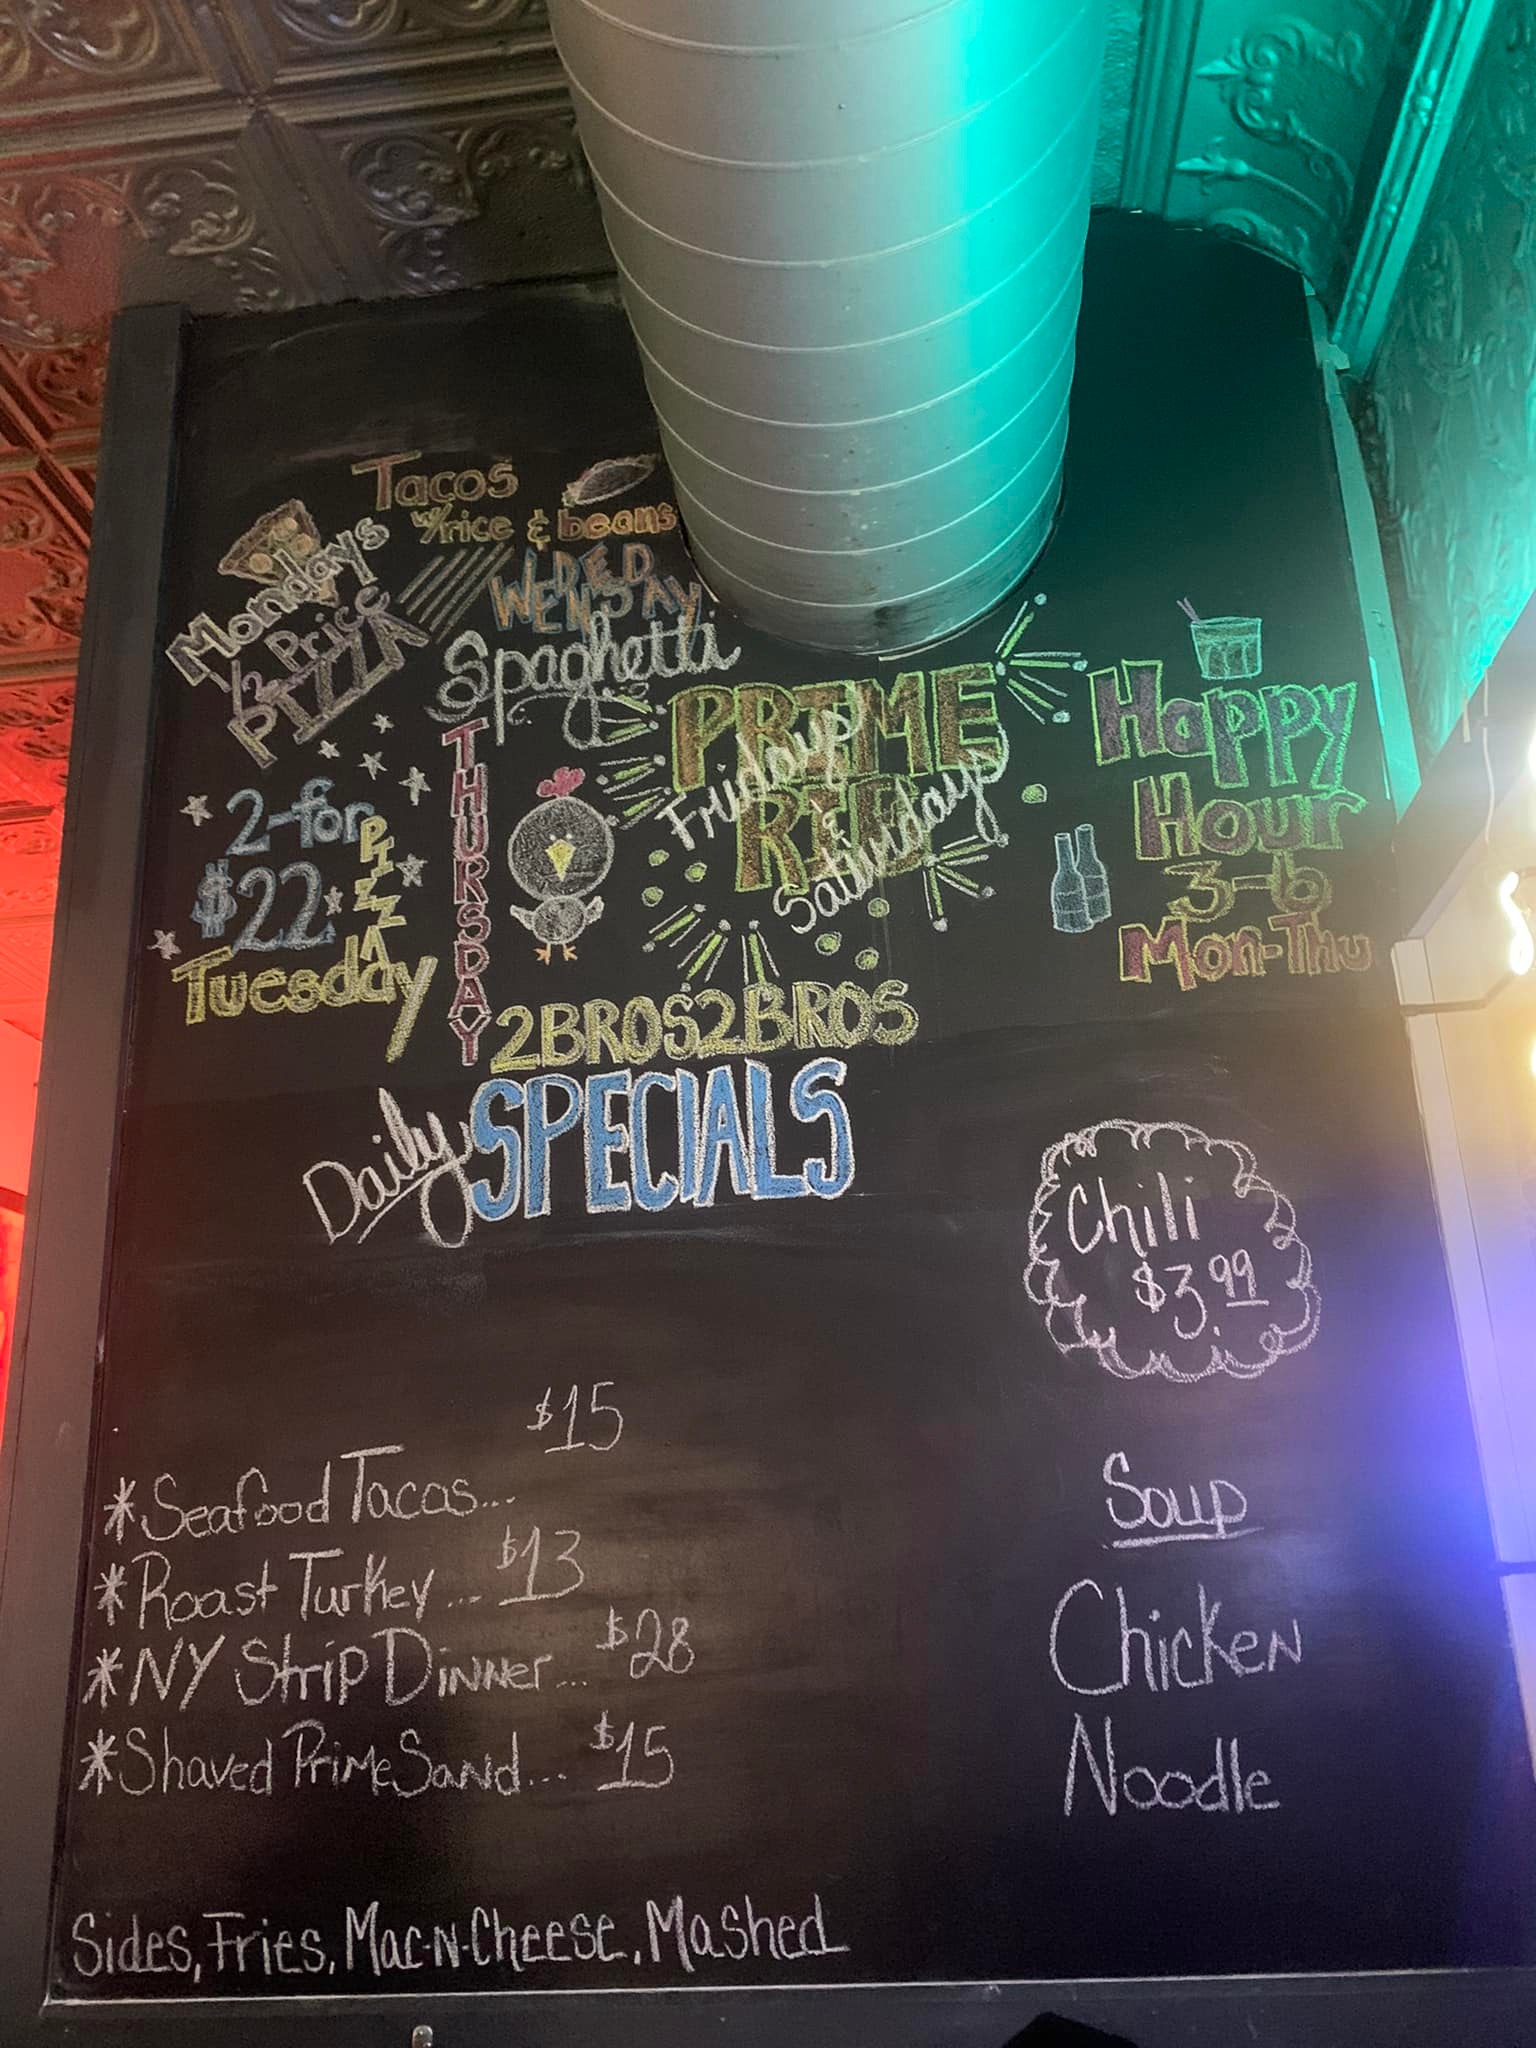 Tacos
w/rice & beans
WEDENSDAY
Mondays
1/2 Price
PIZZA
Spaghetti
THURSDAY
2-for
$22
PIZZA
Tuesday
PRIME
RIB
Fridays
&
Saturdays
Happy
Hour
3-6
Mon-Thu
2BROS2BROS
Daily SPECIALS
Chili
$3.99
*Seafood Tacos... $15
*Roast Turkey... $13
*NY Strip Dinner... $28
*Shaved Prime Sand... $15
Soup
Chicken
Noodle
Sides, Fries, Mac-N-Cheese, Mashed